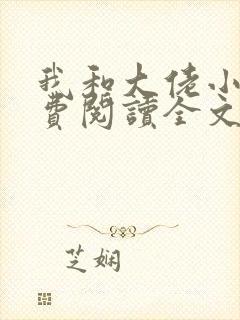 我和大佬小
費閱讀全文
芝娴